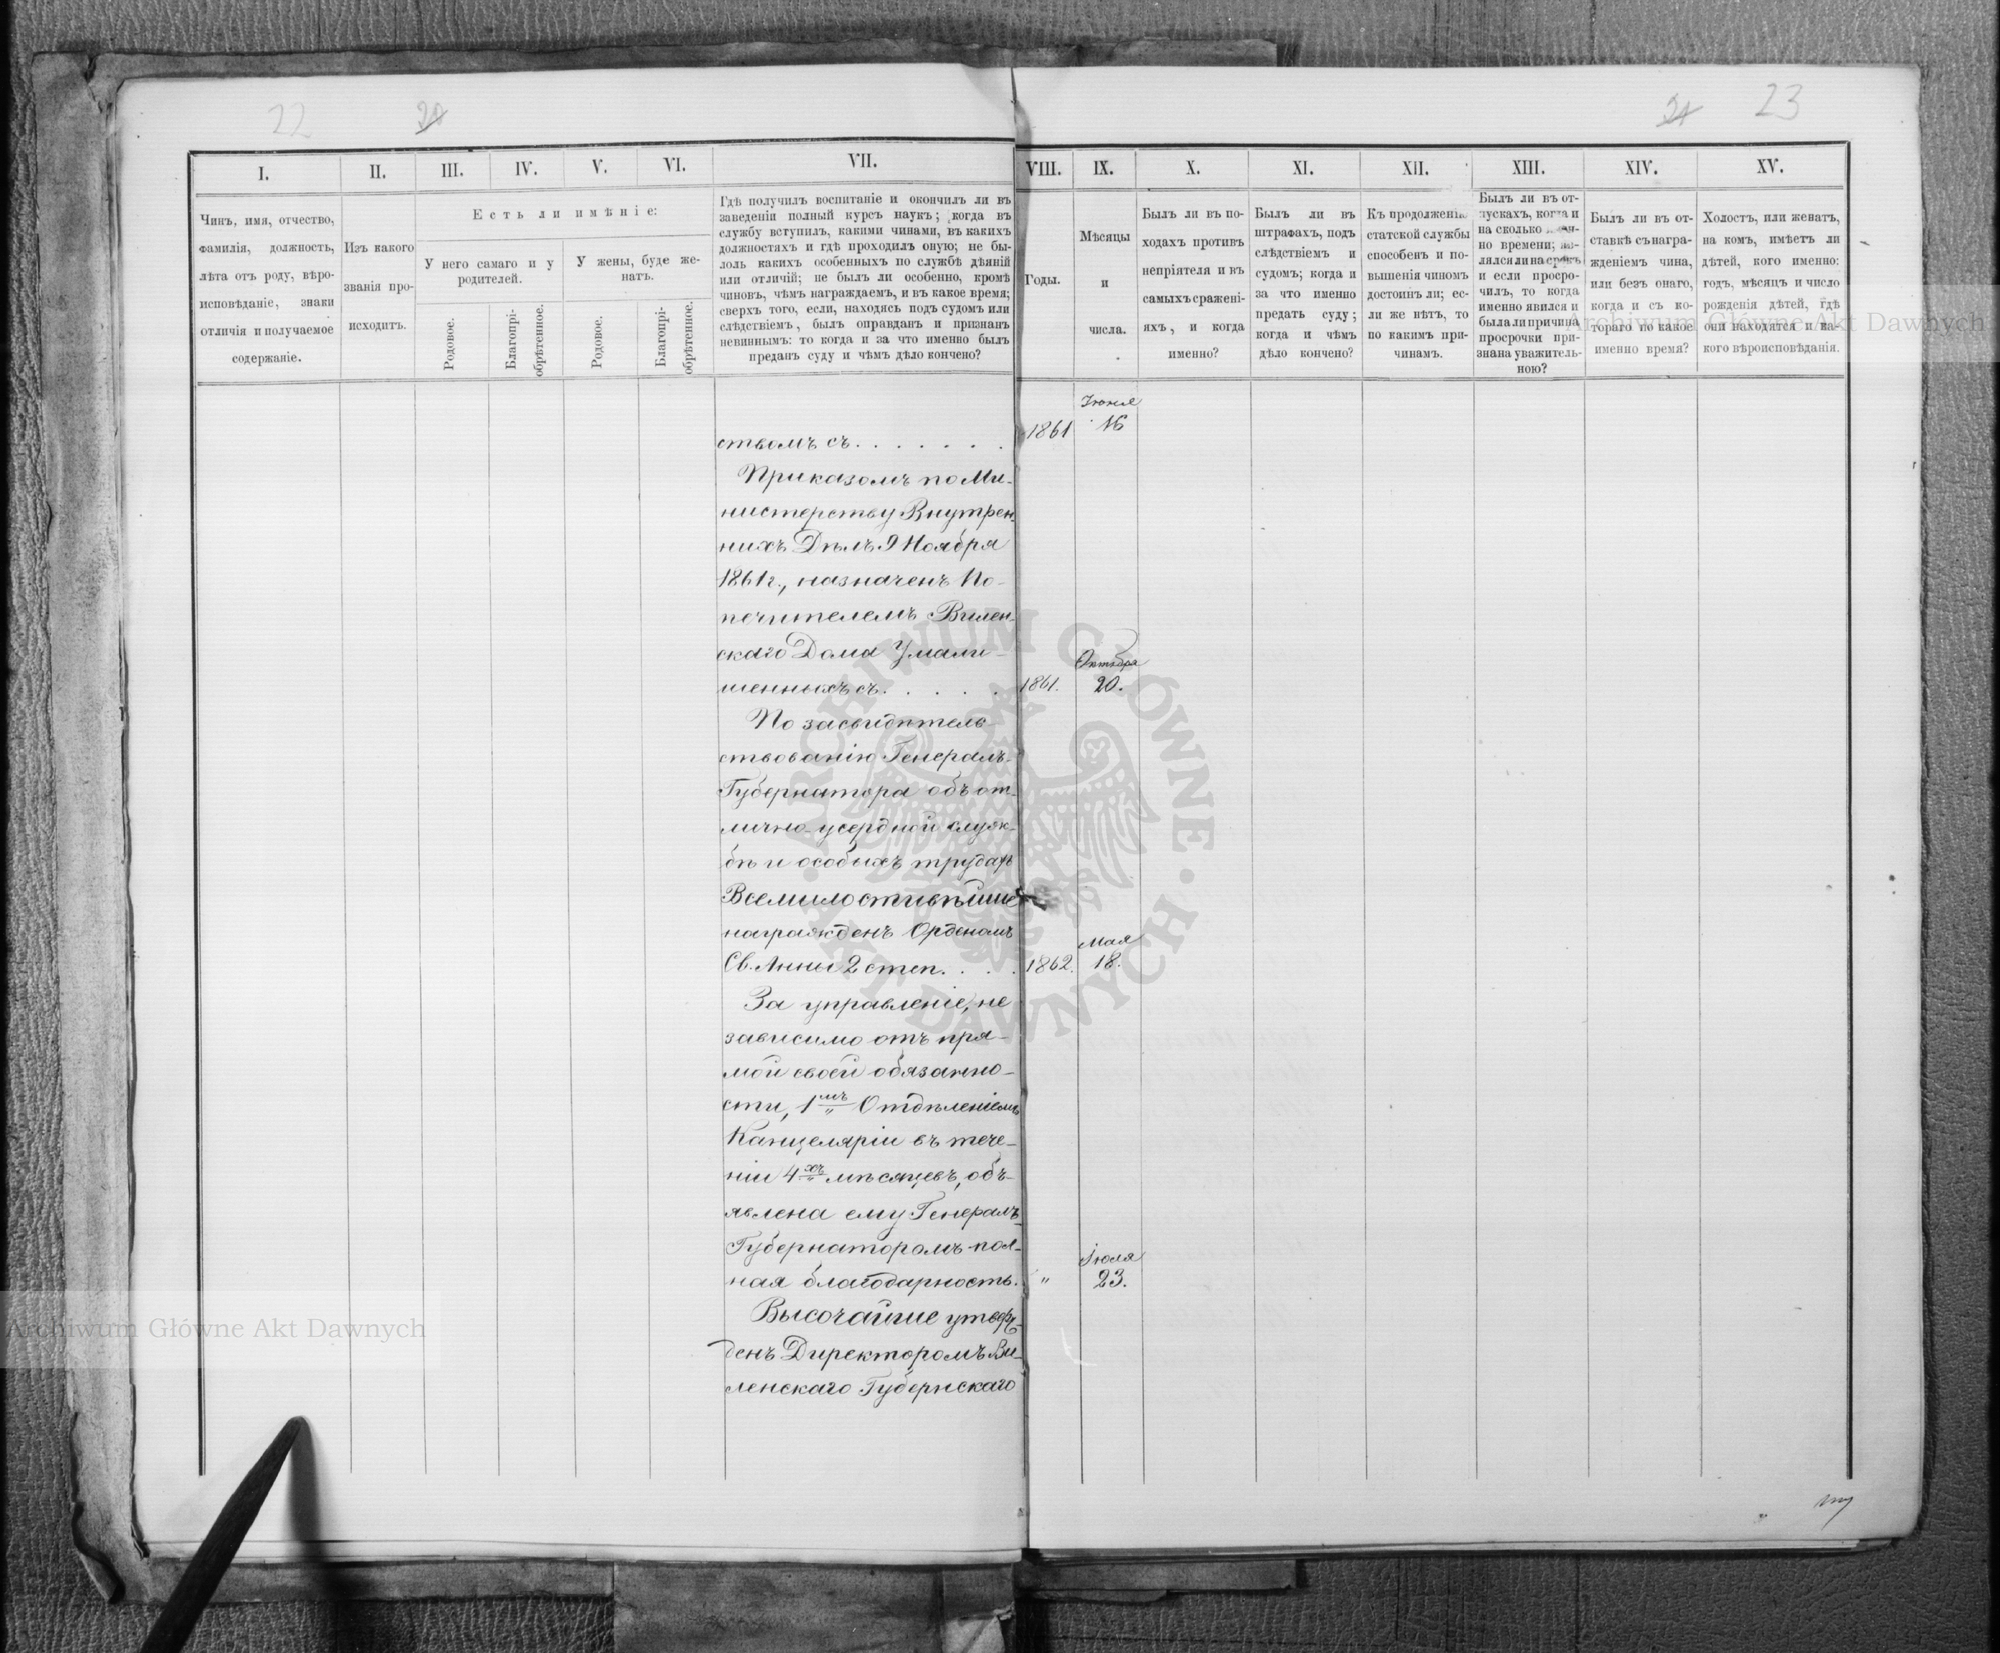 22
21
21
23
I.
II.
III.
IV.
V.
VI.
VII.
VIII.
IX.
X.
XI.
XII.
XIII.
XIV.
XV.
Чинъ, имя, отчество,
фамилія, должность,
лѣта отъ роду, вѣро-
исповѣданіе, знаки
отличія и получаемое
содержаніе.
Изъ какого
званія про-
исходитъ.
Есть ли имѣніе:
У него самаго и у
родителей.
У жены, буде же-
натъ.
Родовое.
Благопрі-
обрѣтенное.
Родовое.
Благопрі-
обрѣтенное.
Гдѣ получилъ воспитаніе и окончилъ ли въ
заведеніи полный курсъ наукъ; когда въ
службу вступилъ, какими чинами, въ какихъ
должностяхъ и гдѣ проходилъ оную; не бы-
лоль какихъ особенныхъ по службѣ дѣяній
или отличій; не былъ ли особенно, кромѣ
чиновъ, чѣмъ награждаемъ, и въ какое время;
сверхъ того, если, находясь подъ судомъ или
слѣдствіемъ, былъ оправданъ и признанъ
невиннымъ: то когда и за что именно былъ
преданъ суду и чѣмъ дѣло кончено?
Годы.
Мѣсяцы
и
числа.
Былъ ли въ по-
ходахъ противъ
непріятеля и въ
самыхъ сражені-
яхъ, и когда
именно?
Былъ ли въ
штрафахъ, подъ
слѣдствіемъ и
судомъ; когда и
за что именно
преданъ суду;
когда и чѣмъ
дѣло кончено?
Къ продолженію
статской службы
способенъ и по-
вышенія чиномъ
достоинъ ли; ес-
ли же нѣтъ, то
по какимъ при-
чинамъ.
Былъ ли въ от-
пускахъ, когда и
на сколько имен-
но времени; яв-
лялся ли на срокъ
и если просро-
чилъ, то когда
именно явился и
была ли причина
просрочки при-
знана уважитель-
ною?
Былъ ли въ от-
ставкѣ съ награ-
жденіемъ чина,
или безъ онаго,
когда и съ ко-
тораго по какое
именно время?
Холостъ, или женатъ,
на комъ, имѣетъ ли
дѣтей, кого именно:
годъ, мѣсяцъ и число
рожденія дѣтей, гдѣ
они находятся и ка-
кого вѣроисповѣданія.
Іюня
ствомъ съ . . . . . . . 1861 16
Приказомъ по Ми-
нистерству Внутрен-
нихъ Дѣлъ 9 Ноября
1861 г., назначенъ По-
печителемъ Вилен-
скаго Дома Умали-
Октября
шенныхъ съ . . . . . 1861. 20.
По засвидѣтель-
ствованію Генералъ-
Губернатора объ от-
лично-усердной служ-
бѣ и особыхъ трудахъ
Всемилостивѣйше
награжденъ Орденомъ
Мая
Св. Анны 2 степ. . . . 1862. 18.
За управленіе, не
зависимо отъ пря-
мой своей обязанно-
сти, 1мъ Отдѣленіемъ
Канцеляріи въ тече-
ніи 4хъ мѣсяцевъ, объ-
явлена ему Генералъ-
Губернаторомъ пол-
Іюля
ная благодарность. " 23.
Высочайше утверж-
денъ Директоромъ Ви-
ленскаго Губернскаго
Archiwum Główne Akt Dawnych
Archiwum Główne Akt Dawnych
ARCHIWUM GŁÓWNE AKT DAWNYCH